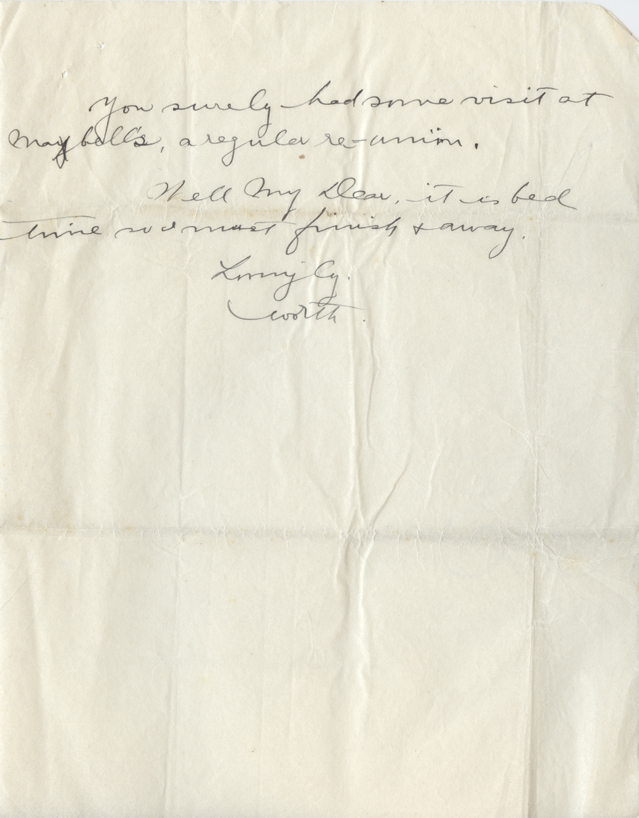 You surely had some visit at
Maybell's, a regular re-union.
Well My Dear, it is bed
time so I must finish & away.
Lovingly.
Worth.